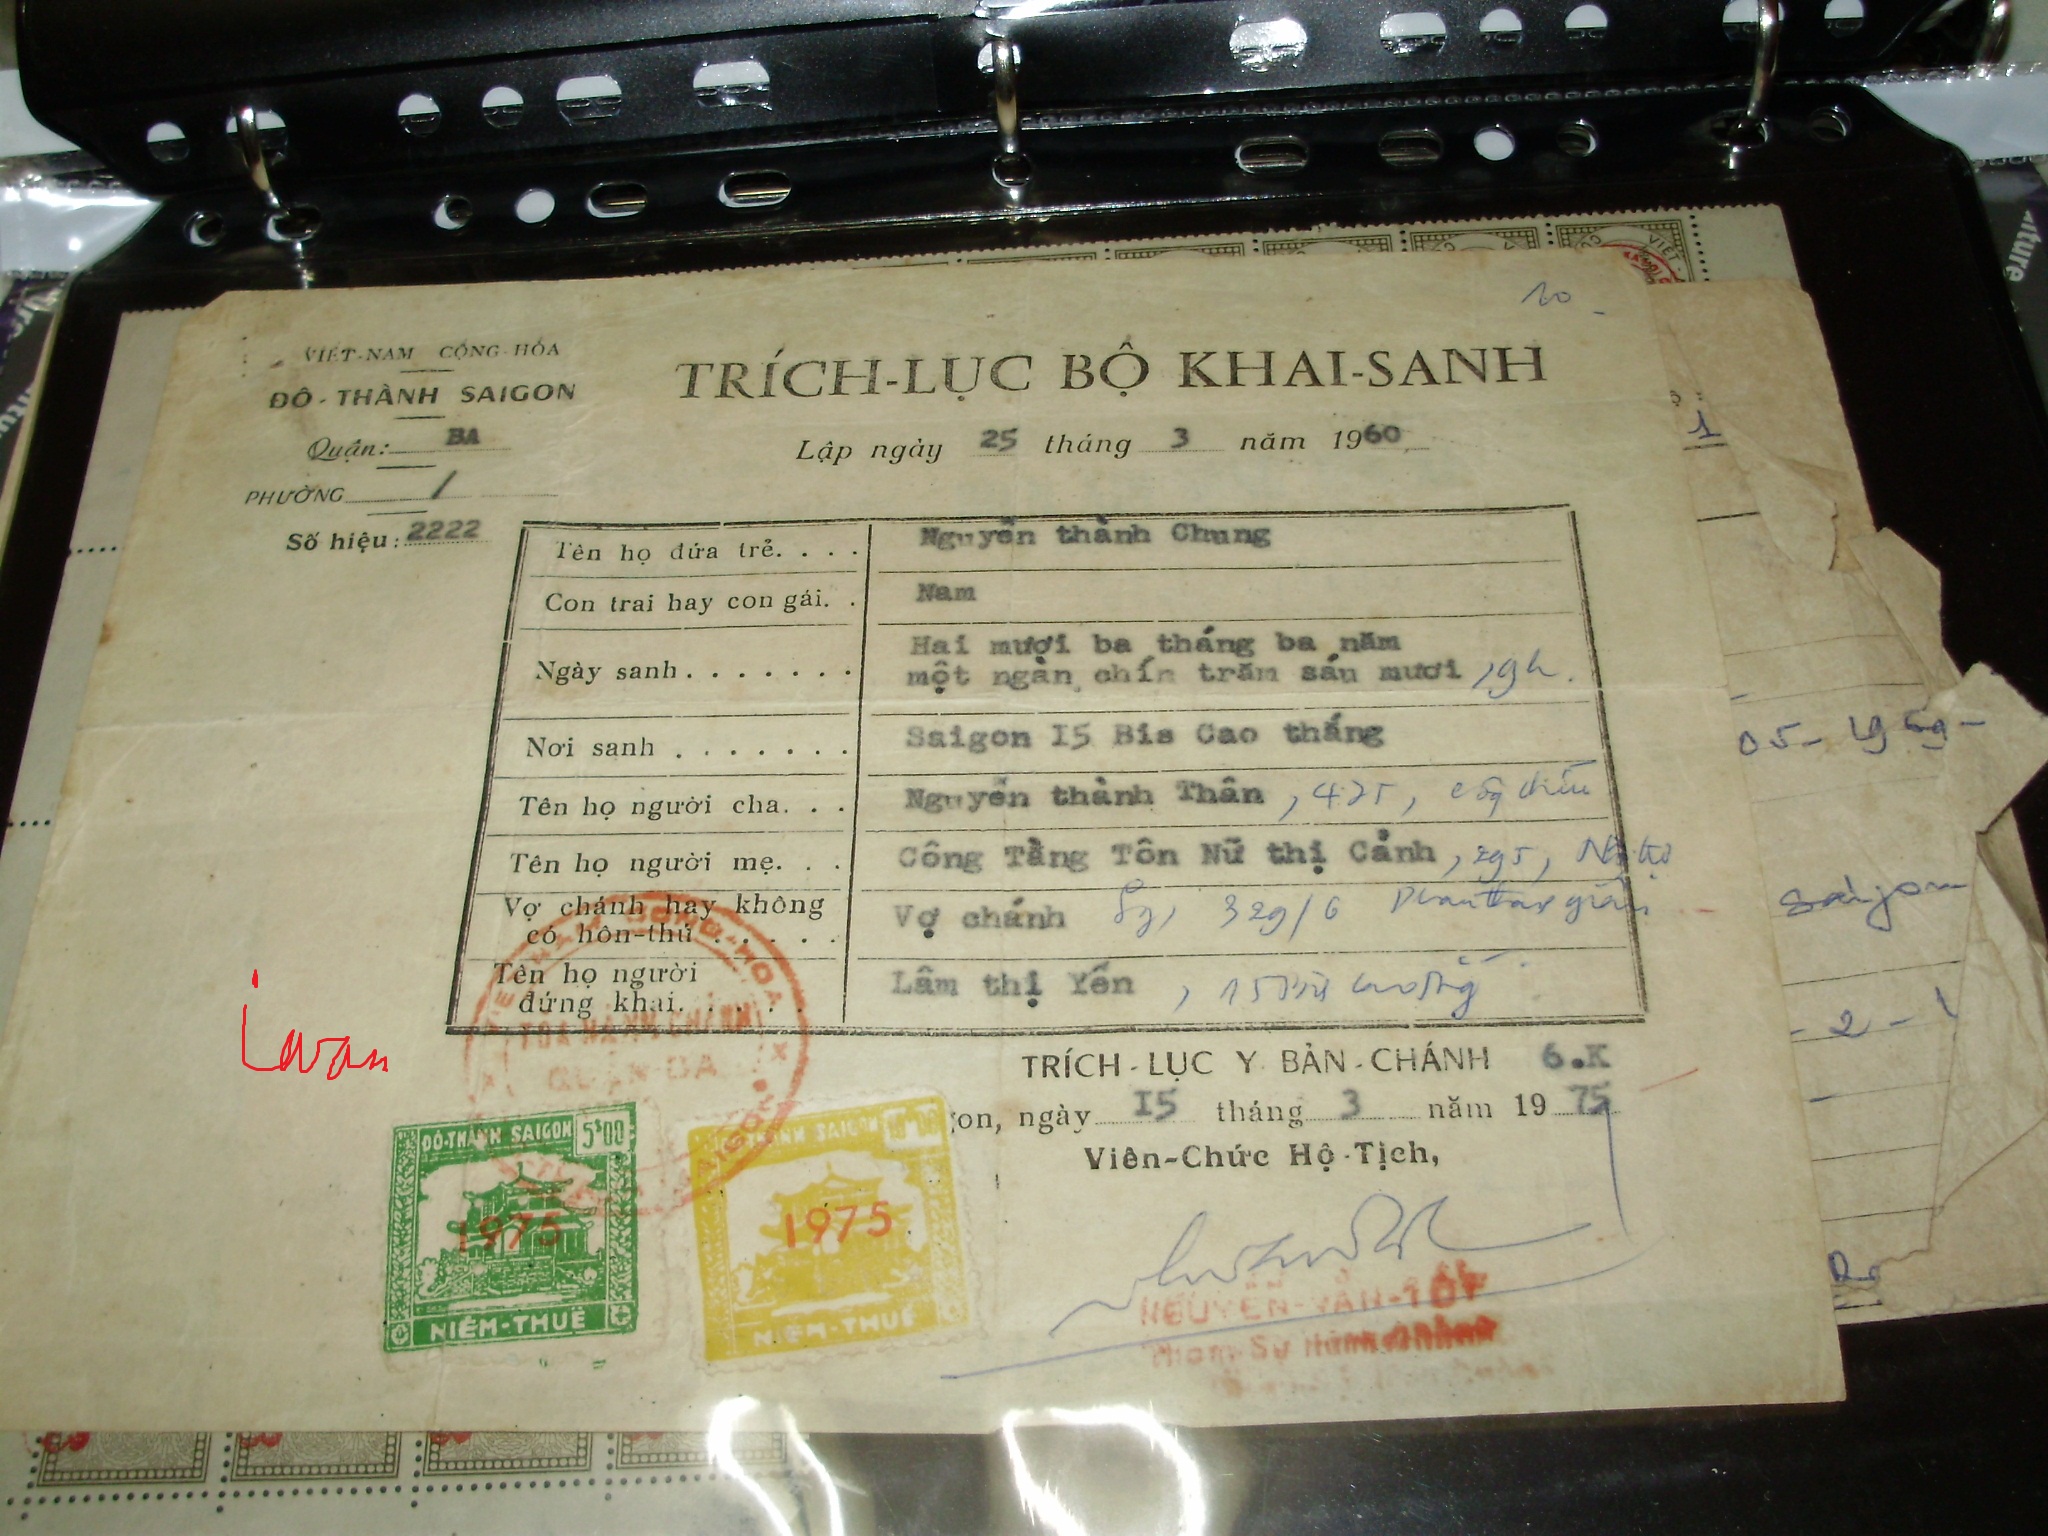 20
VIỆT-NAM CỘNG-HÒA
ĐÔ-THÀNH SAIGON
Quận: BA
PHƯỜNG /
Số hiệu: 2222
TRÍCH-LỤC BỘ KHAI-SANH
Lập ngày 25 tháng 3 năm 1960
Tên họ đứa trẻ. . . . Nguyễn thành Chung
Con trai hay con gái. . Nam
Ngày sanh . . . . . . . Hai mươi ba tháng ba năm
một ngàn chín trăm sáu mươi , 9h.
Nơi sanh . . . . . . . Saigon I5 Bis Cao thắng
Tên họ người cha. . . Nguyễn thành Thân , 42T ,
Tên họ người mẹ. . . Công Tằng Tôn Nữ thị Cảnh , 29T , Nội trợ
Vợ chánh hay không
có hôn-thú . . . . . Vợ chánh Sg, 329/6 Phan thanh giản
Tên họ người
đứng khai. . . . . . Lâm thị Yến ,
TÒA HÀNH CHÁNH
QUẬN BA
TRÍCH-LỤC Y BẢN-CHÁNH 6.K
gon, ngày I5 tháng 3 năm 1975
Viên-Chức Hộ-Tịch,
NGUYỄN-VĂN-TỐT
Tham Sự Hành Chánh
ĐÔ-THÀNH SAIGON 5$00
1975
NIÊM-THUẾ
ĐÔ-THÀNH SAIGON
1975
NIÊM-THUẾ
ivan
VIỆT
1
05-1959-
Saigon
-2-1
ulture